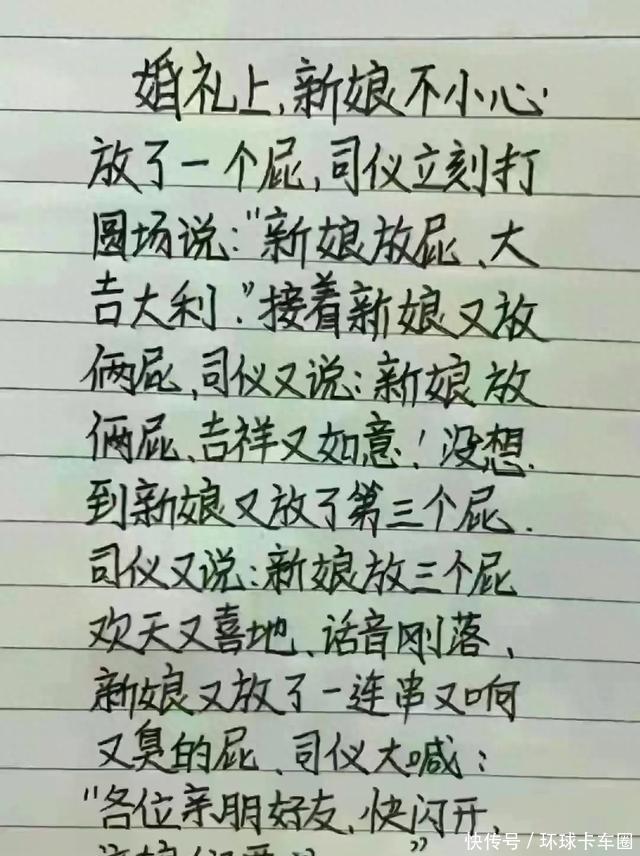 婚礼上,新娘不小心
放了一个屁,司仪立刻打
圆场说:"新娘放屁、大
吉大利."接着新娘又放
俩屁,司仪又说:新娘放
俩屁、吉祥又如意!没想
到新娘又放了第三个屁.
司仪又说:新娘放三个屁
欢天又喜地、话音刚落、
新娘又放了一连串又响
又臭的屁、司仪大喊:
"各位亲朋好友,快闪开,
快传号/环球卡车圈